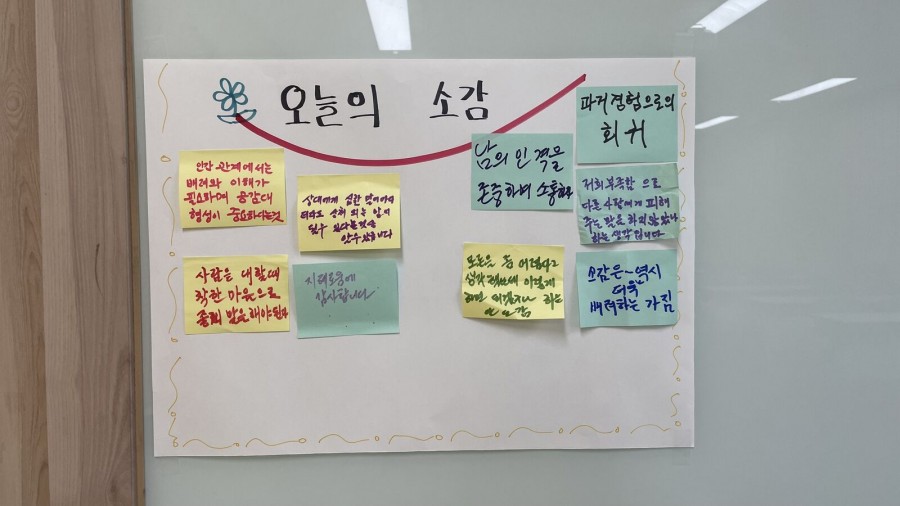 오늘의 소감
인간 관계에서는
배려와 이해가
필요하며 공감대
형성이 중요하다는것
상대에게 심한 말이
상처 되는 말이
될수 있다는것을
알수있습니다
남의 인격을
존중하며 소통하자
과거경험으로의
회귀
저희 부족함 으로
다른 사람에게 피해
주는 말을 하지 않았나
하는 생각 입니다
사람은 대할때
착한 마음으로
좋은 말을 해야 된다
지혜로움에
감사합니다
모든은 좀 어렵다고
생각 했는데 이렇게
하면 되겠구나 하는
소감은~역시
더욱
배려하는 가짐